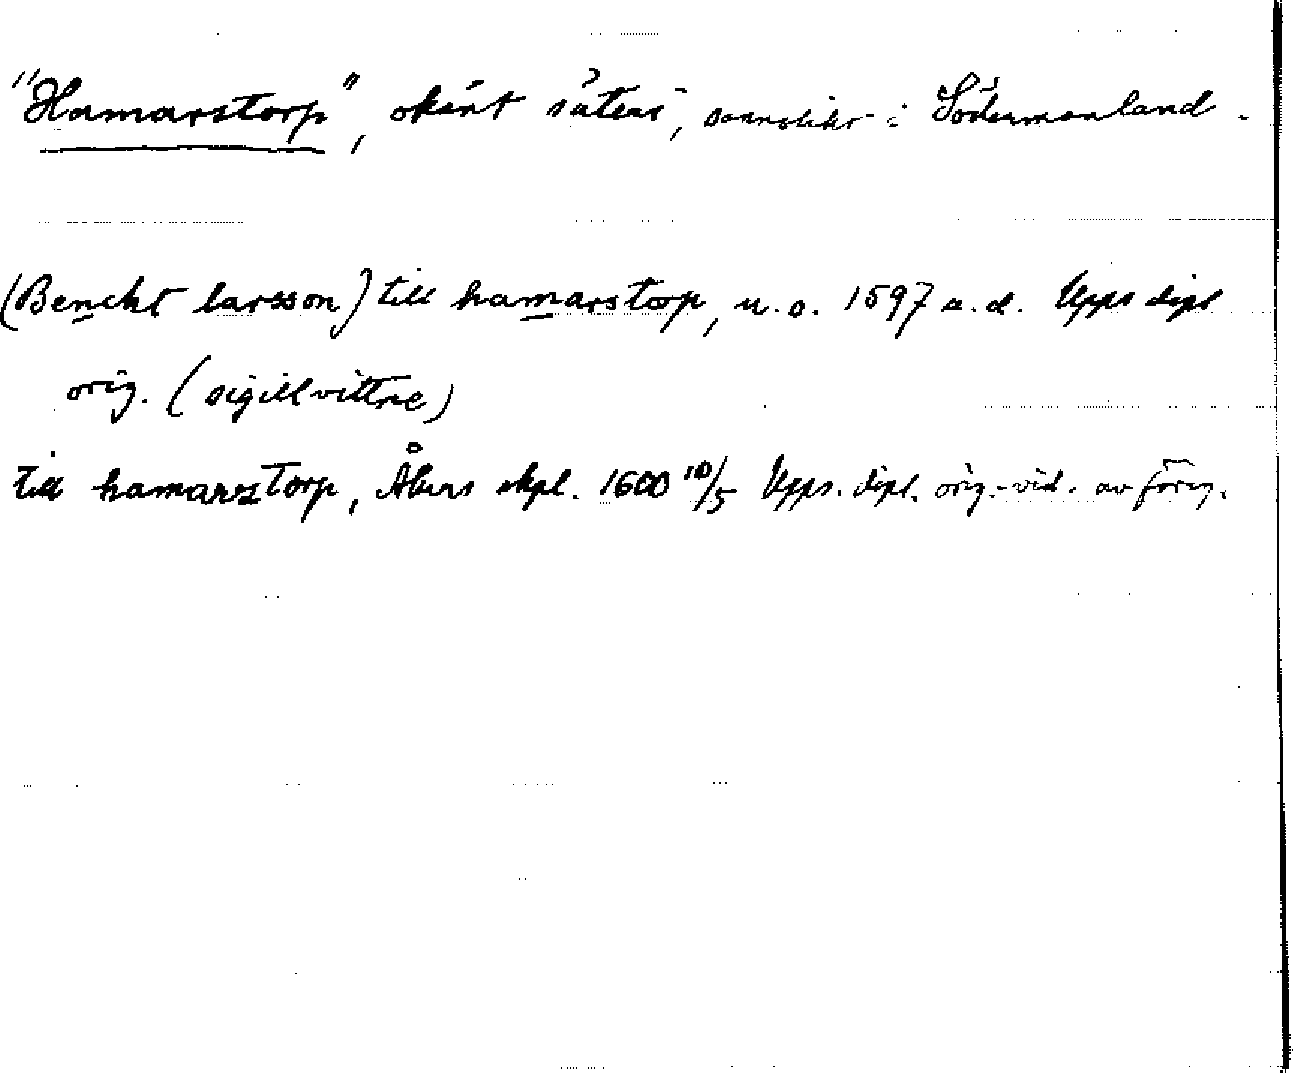 "Hamarstorp", okänt säteri, sannolikt i Södermanland.
(Bencht larsson) till hamarstorp, u.o. 1597 u.d. Upps dipl
orig. (sigillvittne)
till hamarstorp, Åkers skpl. 1600 10/5 Upps. dipl. orig.-vid. av föreg.